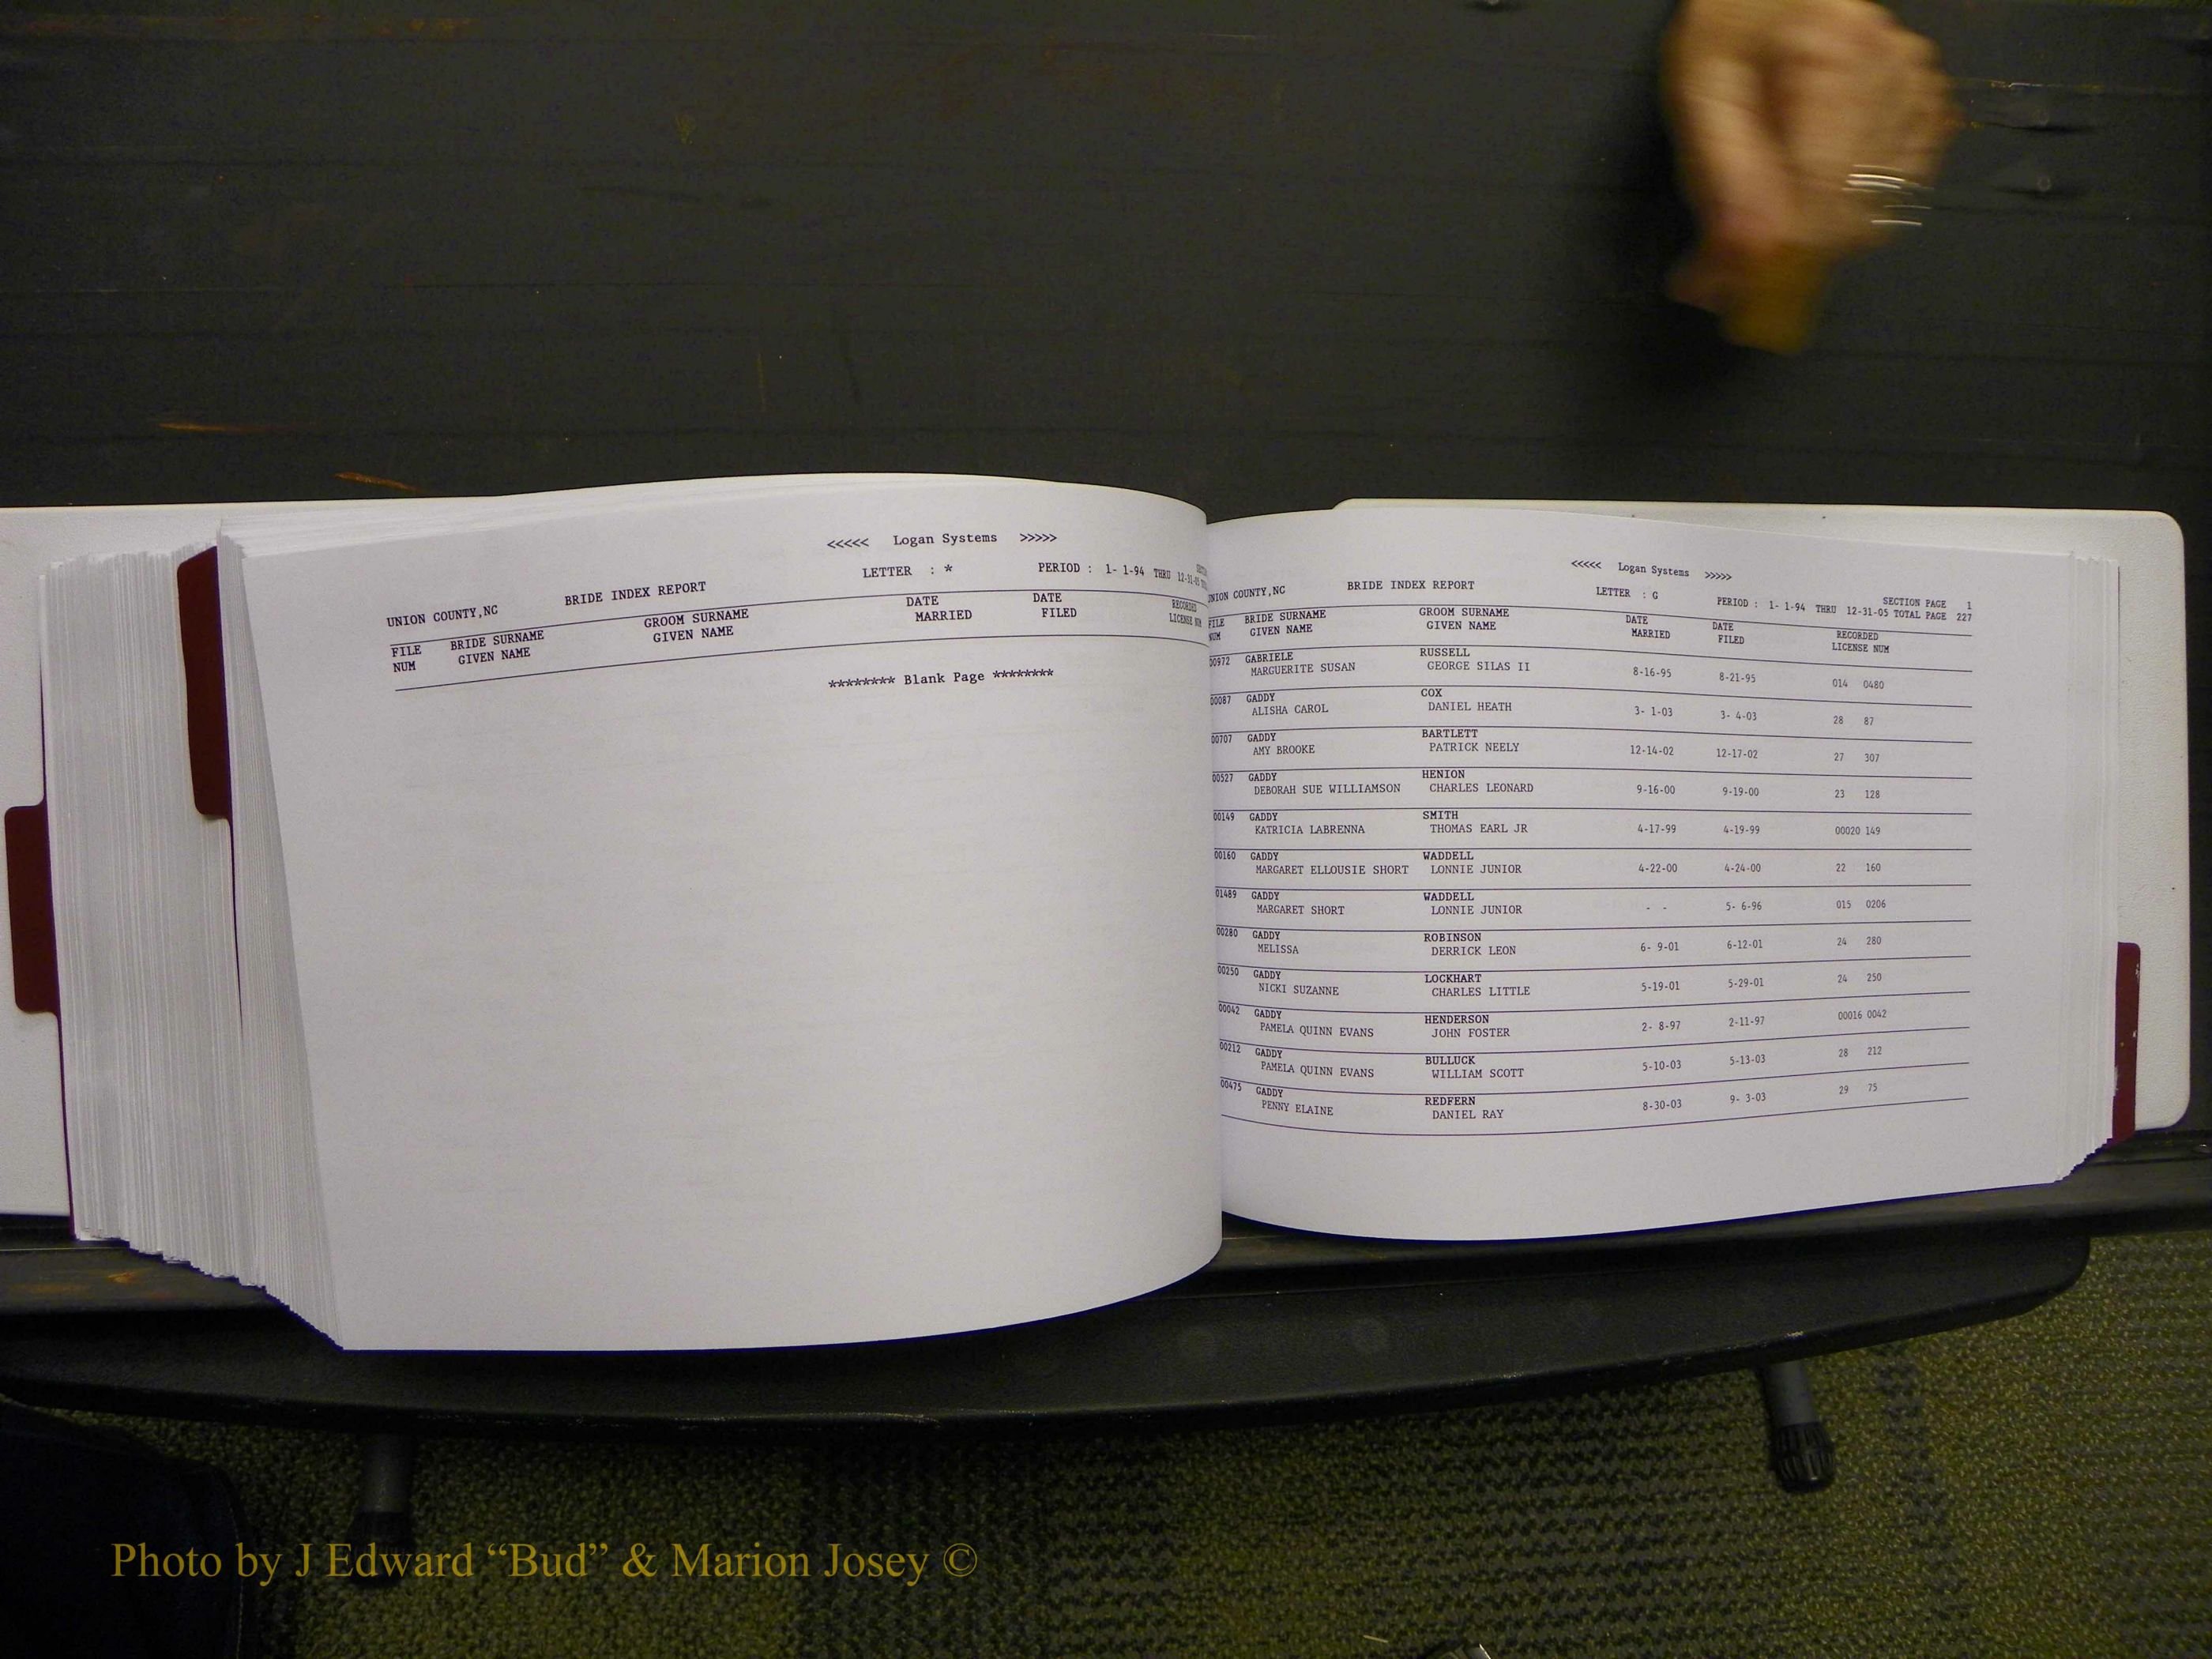 <<<<< Logan Systems >>>>>
UNION COUNTY,NC BRIDE INDEX REPORT LETTER : * PERIOD : 1- 1-94 THRU 12-31-05
FILE BRIDE SURNAME GROOM SURNAME DATE DATE RECORDED
NUM GIVEN NAME GIVEN NAME MARRIED FILED LICENSE NUM
******** Blank Page ********
<<<<< Logan Systems >>>>>
UNION COUNTY,NC BRIDE INDEX REPORT LETTER : G SECTION PAGE 1
PERIOD : 1- 1-94 THRU 12-31-05 TOTAL PAGE 227
FILE BRIDE SURNAME GROOM SURNAME DATE DATE RECORDED
NUM GIVEN NAME GIVEN NAME MARRIED FILED LICENSE NUM
00972 GABRIELE RUSSELL
MARGUERITE SUSAN GEORGE SILAS II 8-16-95 8-21-95 014 0480
00087 GADDY COX
ALISHA CAROL DANIEL HEATH 3- 1-03 3- 4-03 28 87
00707 GADDY BARTLETT
AMY BROOKE PATRICK NEELY 12-14-02 12-17-02 27 307
00527 GADDY HENION
DEBORAH SUE WILLIAMSON CHARLES LEONARD 9-16-00 9-19-00 23 128
00149 GADDY SMITH
KATRICIA LABRENNA THOMAS EARL JR 4-17-99 4-19-99 00020 149
00160 GADDY WADDELL
MARGARET ELLOUSIE SHORT LONNIE JUNIOR 4-22-00 4-24-00 22 160
01489 GADDY WADDELL
MARGARET SHORT LONNIE JUNIOR - - 5- 6-96 015 0206
00280 GADDY ROBINSON
MELISSA DERRICK LEON 6- 9-01 6-12-01 24 280
00250 GADDY LOCKHART
NICKI SUZANNE CHARLES LITTLE 5-19-01 5-29-01 24 250
00042 GADDY HENDERSON
PAMELA QUINN EVANS JOHN FOSTER 2- 8-97 2-11-97 00016 0042
00212 GADDY BULLUCK
PAMELA QUINN EVANS WILLIAM SCOTT 5-10-03 5-13-03 28 212
00475 GADDY REDFERN
PENNY ELAINE DANIEL RAY 8-30-03 9- 3-03 29 75
Photo by J Edward “Bud” & Marion Josey ©